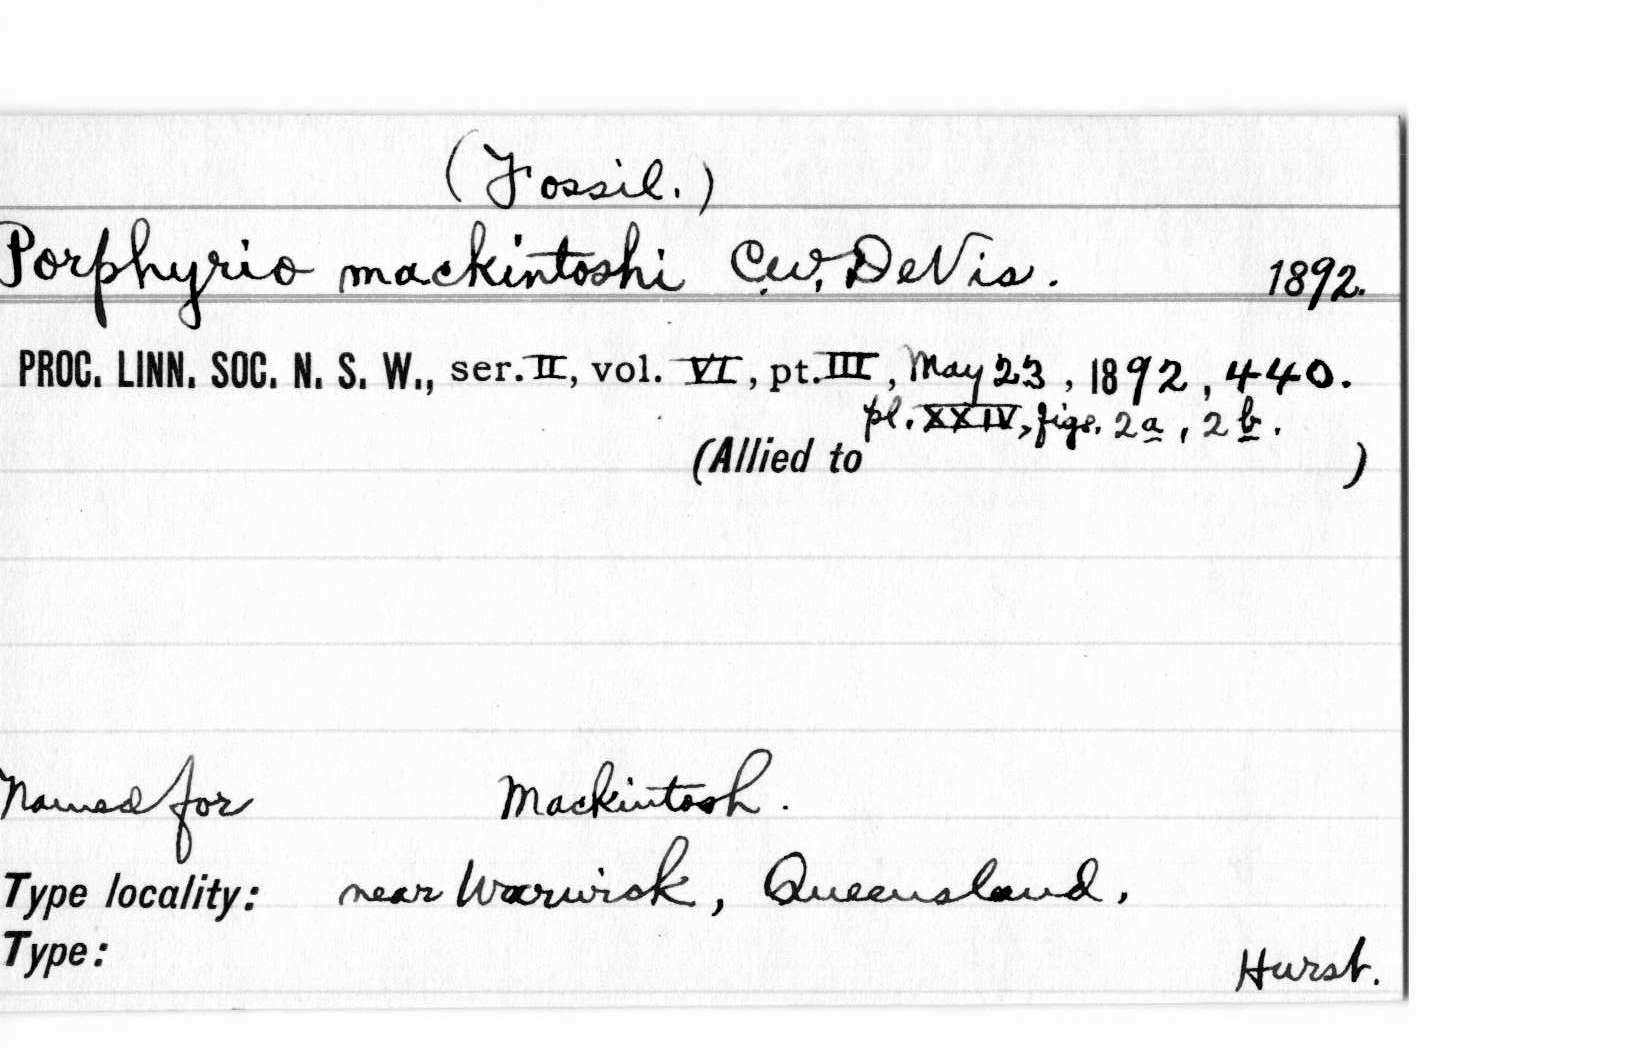 (Fossil.)
Porphyrio mackintoshi C.W. DeVis. 1892.
PROC. LINN. SOC. N. S. W., ser. II, vol. VI, pt. III, May 23, 1892, 440.
pl. XXIV, figs. 2a, 2b.
(Allied to )
Named for Mackintosh.
Type locality: near Warwick, Queensland.
Type:
Hurst.